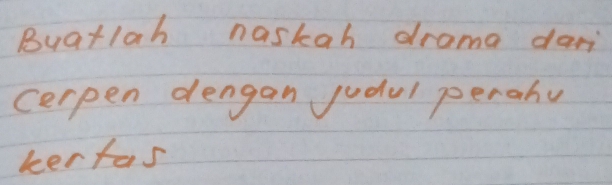 Buatlah naskah drama dari
cerpen dengan judul perahu
kertas